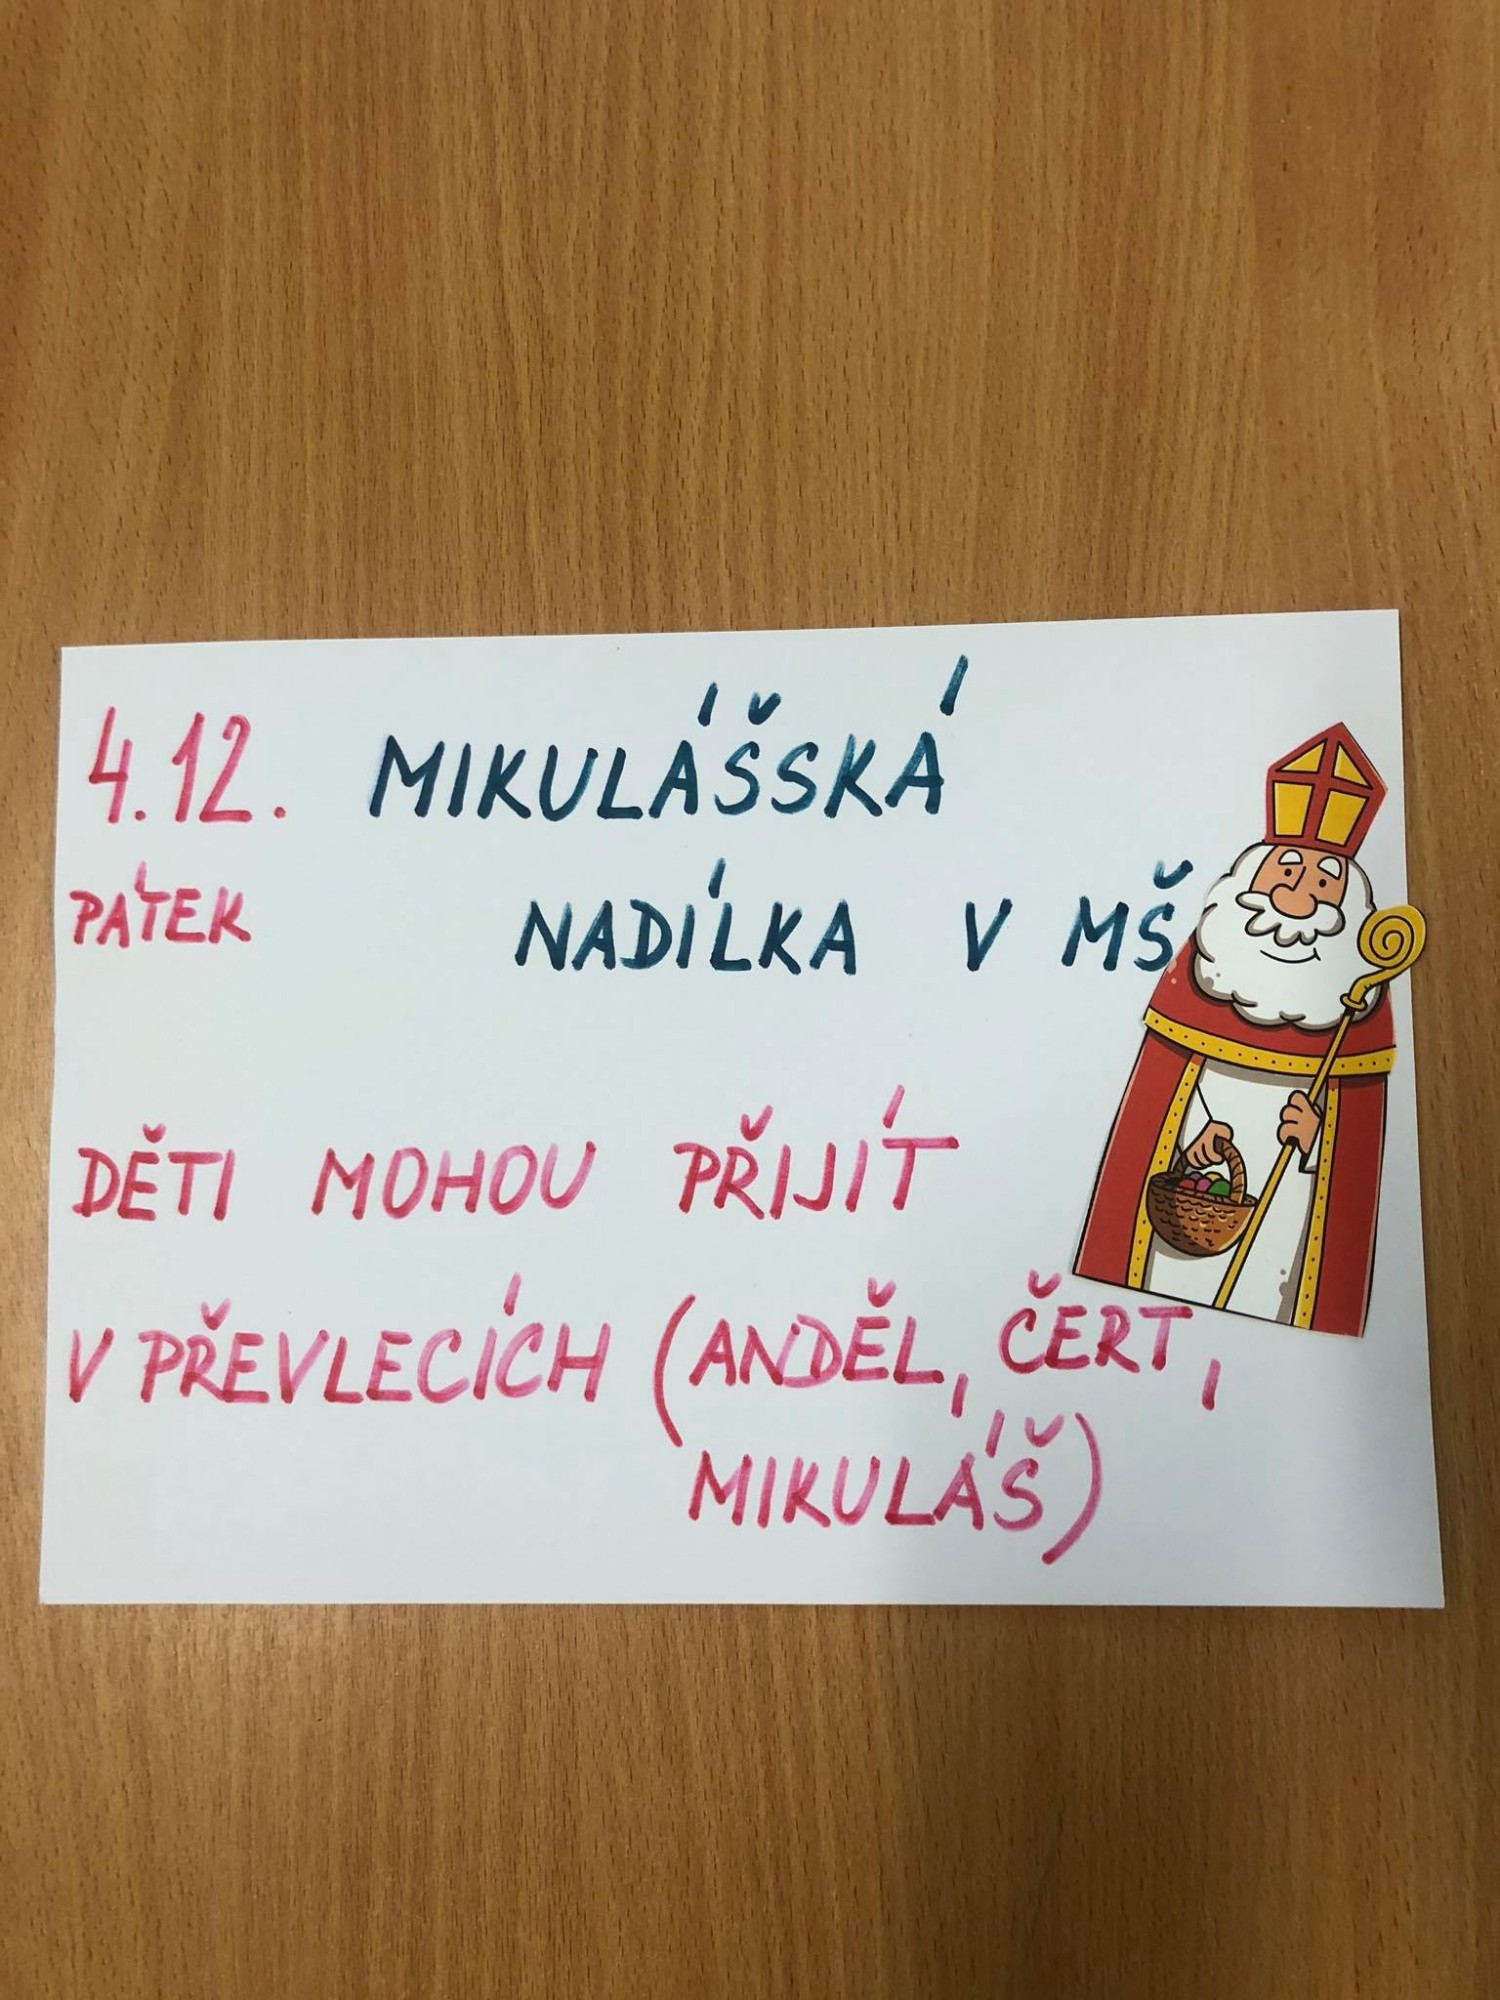 4.12. MIKULÁŠSKÁ
PÁTEK NADÍLKA V MŠ
DĚTI MOHOU PŘIJÍT
V PŘEVLECÍCH (ANDĚL, ČERT,
MIKULÁŠ)